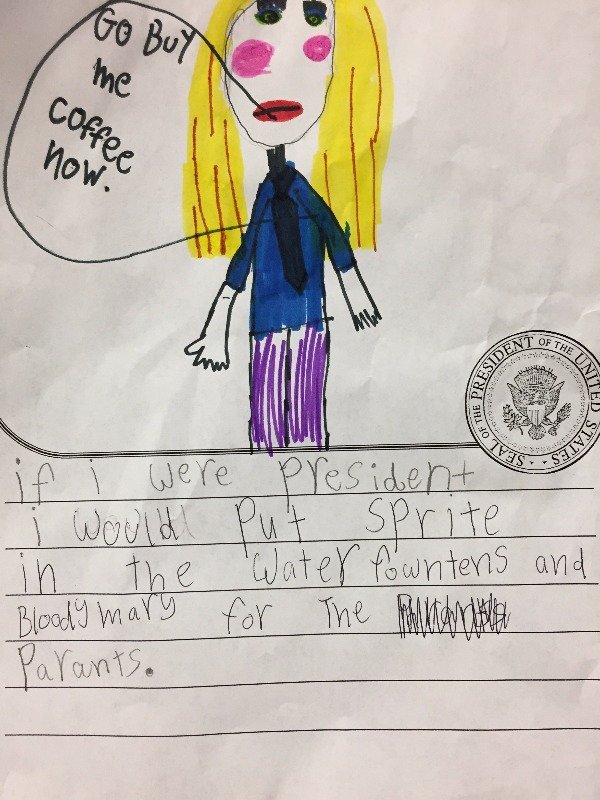 Go Buy
me
coffee
Now.
SEAL OF THE PRESIDENT OF THE UNITED STATES
if i were president
i would put sprite
in the water fowntens and
Bloody mary for The
Parants.